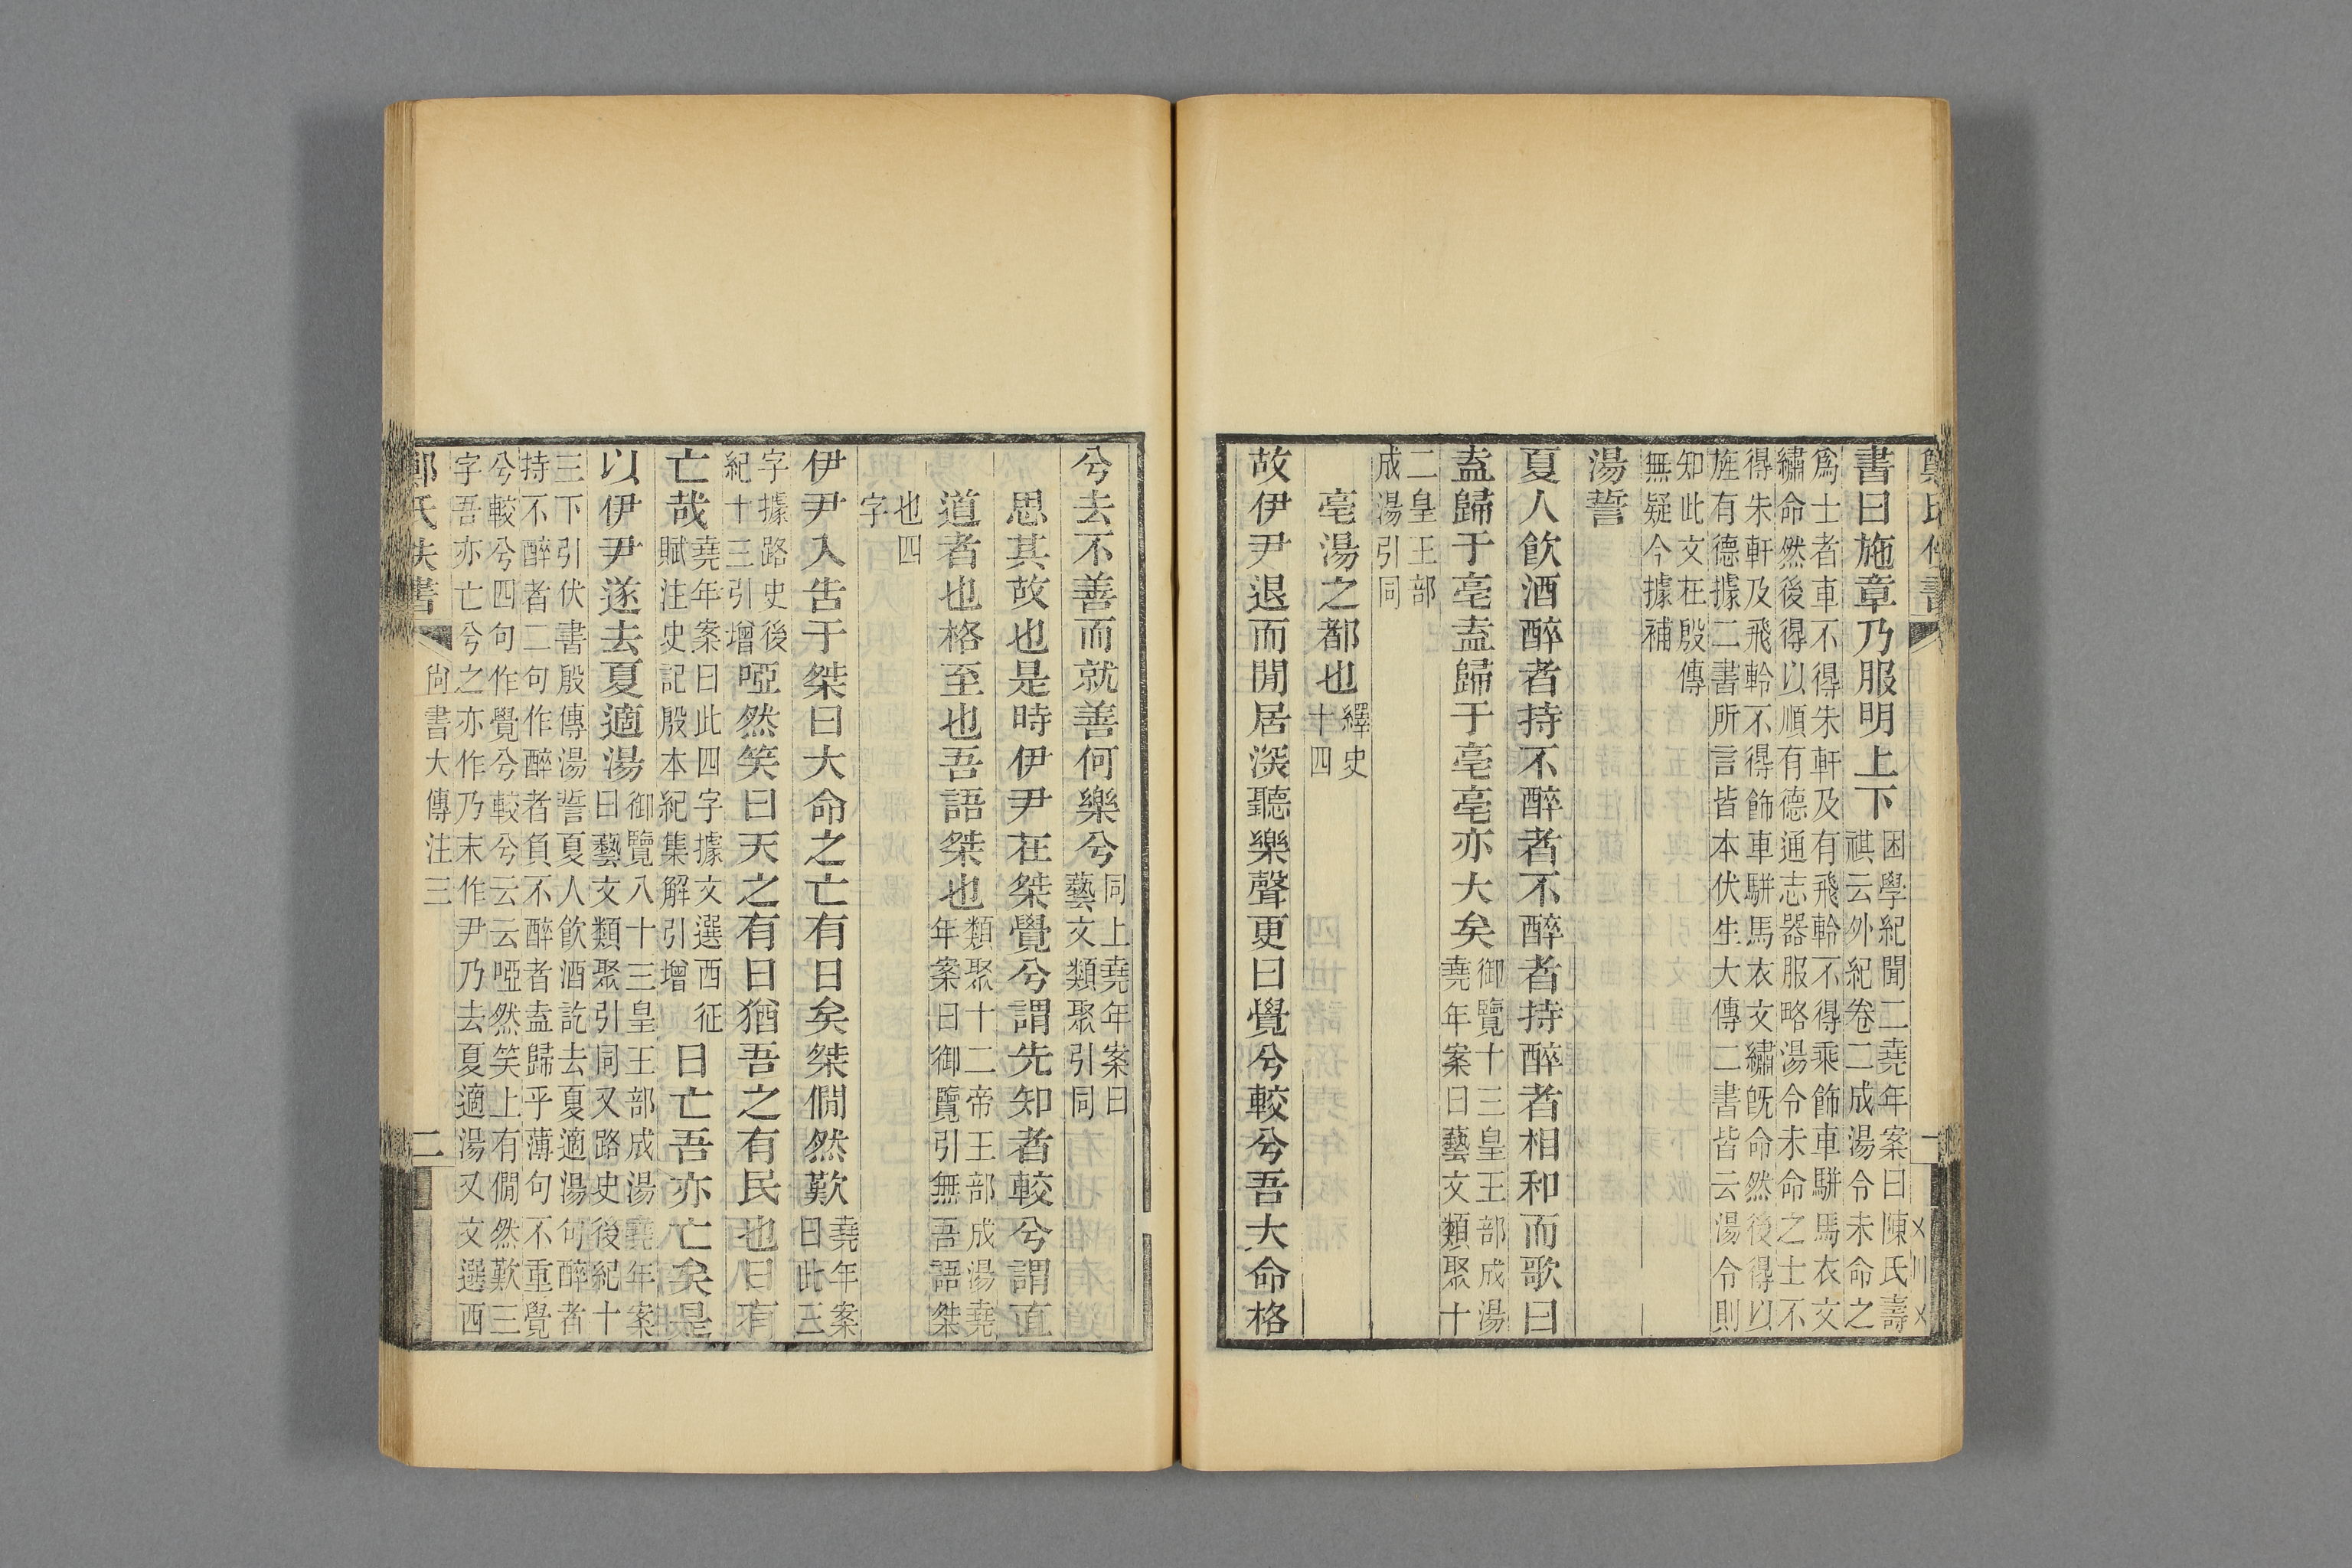 書曰施章乃服明上下困學紀聞二堯年案曰陳氏壽
祺云外紀卷二成湯令未命之
爲士者車不得朱軒及有飛軨不得乘飾車駢馬衣文
繡命然後得以順有德通志器服略湯令未命之士不
得朱軒及飛軨不得飾車駢馬衣文繡旣命然後得以
旌有德據二書所言皆本伏生大傳二書皆云湯令則
知此文在殷傳
無疑今據補
湯誓
夏人飲酒醉者持不醉者不醉者持醉者相和而歌曰
盍歸于亳盍歸于亳亳亦大矣御覽十三皇王部成湯
堯年案曰藝文類聚十
二皇王部
成湯引同
亳湯之都也繹史
十四
故伊尹退而閒居深聽樂聲更曰覺兮較兮吾大命格
兮去不善而就善何樂兮同上堯年案曰
藝文類聚引同
思其故也是時伊尹在桀覺兮謂先知者較兮謂直
道者也格至也吾語桀也類聚十二帝王部成湯堯
年案曰御覽引無吾語桀
也四
字
伊尹入告于桀曰大命之亡有日矣桀僩然歎堯年案
曰此三
字據路史後
紀十三引增啞然笑曰天之有日猶吾之有民也日有
亡哉堯年案曰此四字據文選西征
賦注史記殷本紀集解引增日亡吾亦亡矣是
以伊尹遂去夏適湯御覽八十三皇王部成湯堯年案
曰藝文類聚引同又路史後紀十
三下引伏書殷傳湯誓夏人飲酒訖去夏適湯句醉者
持不醉者二句作醉者負不醉者盍歸乎薄句不重覺
兮較兮四句作覺兮較兮云云啞然笑上有僩然歎三
字吾亦亡兮之亦作乃末作尹乃去夏適湯又文選西
尙書大傳注三
二